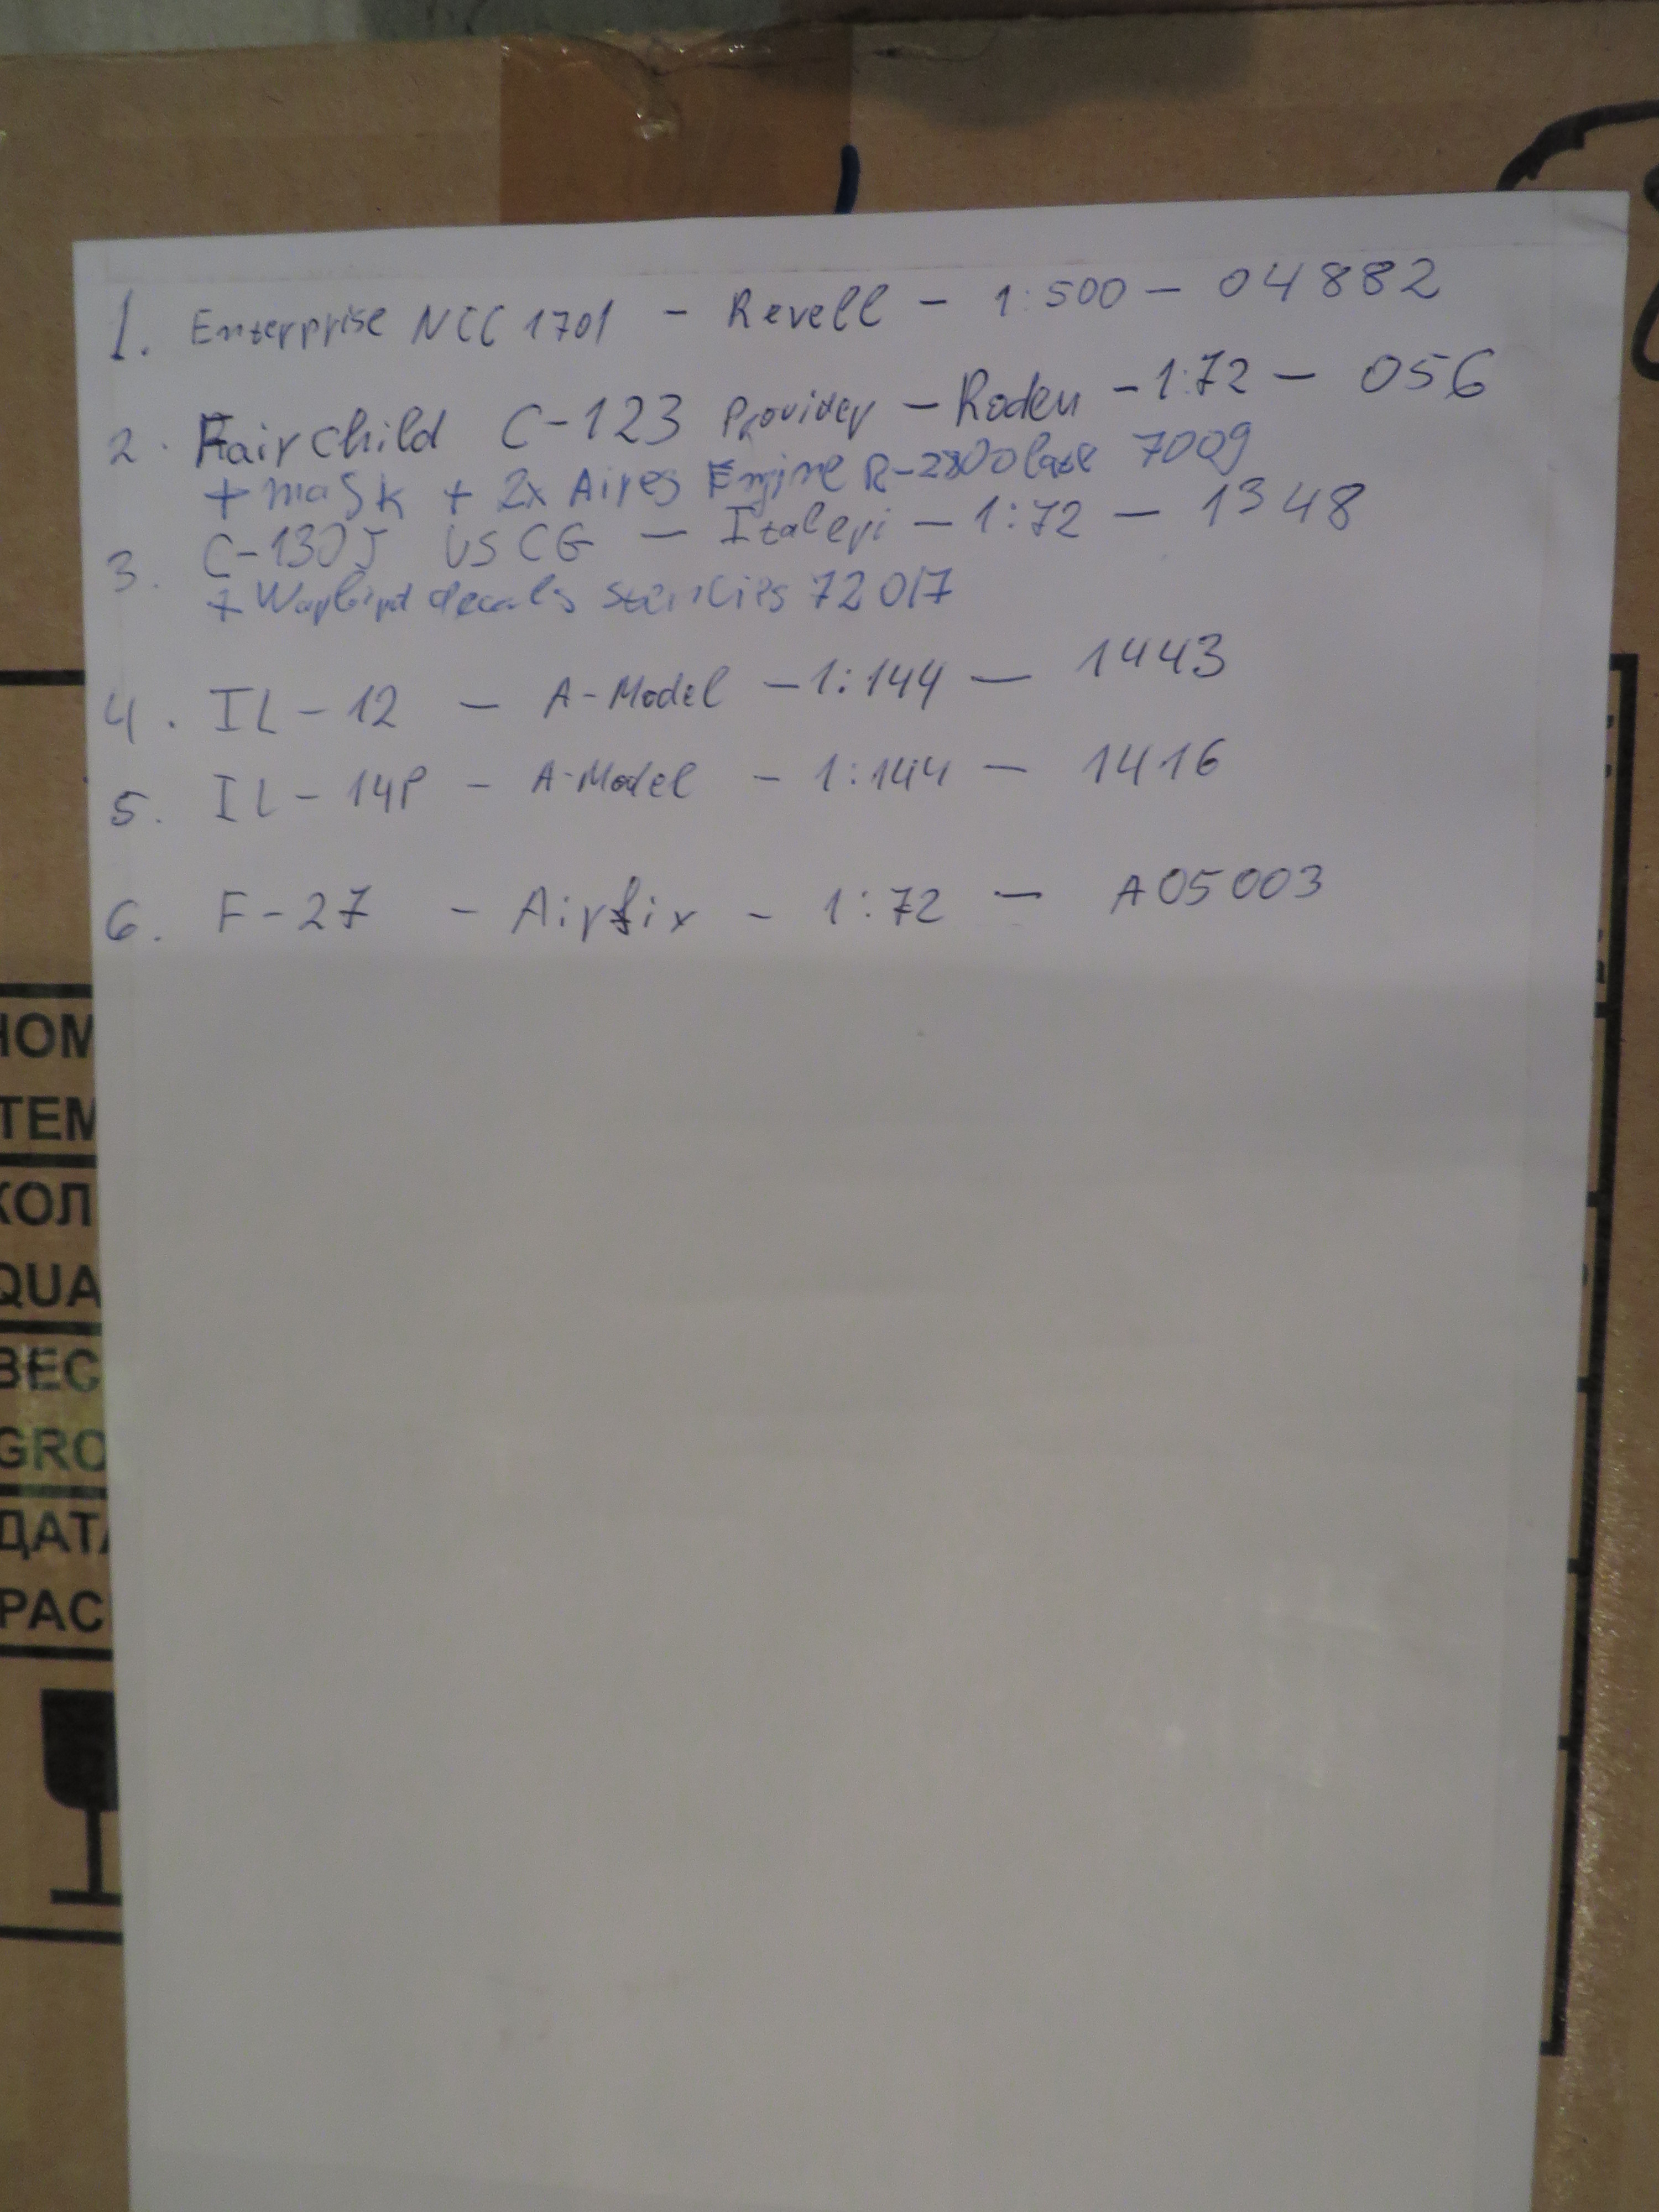 1. Enterprise NCC 1701 - Revell - 1:500 - 04882
2. Fairchild C-123 Provider - Roden - 1:72 - 056
+ mask + 2x Aires Engine R-2800 late 7009
3. C-130J USCG - Italeri - 1:72 - 1348
+ Warbird decals stencils 72017
4. IL-12 - A-Model - 1:144 - 1443
5. IL-14P - A-Model - 1:144 - 1416
6. F-27 - Airfix - 1:72 - A05003
НОМ
ITEM
КОЛ
QUA
ВЕС
GRO
ДАТА
PAC